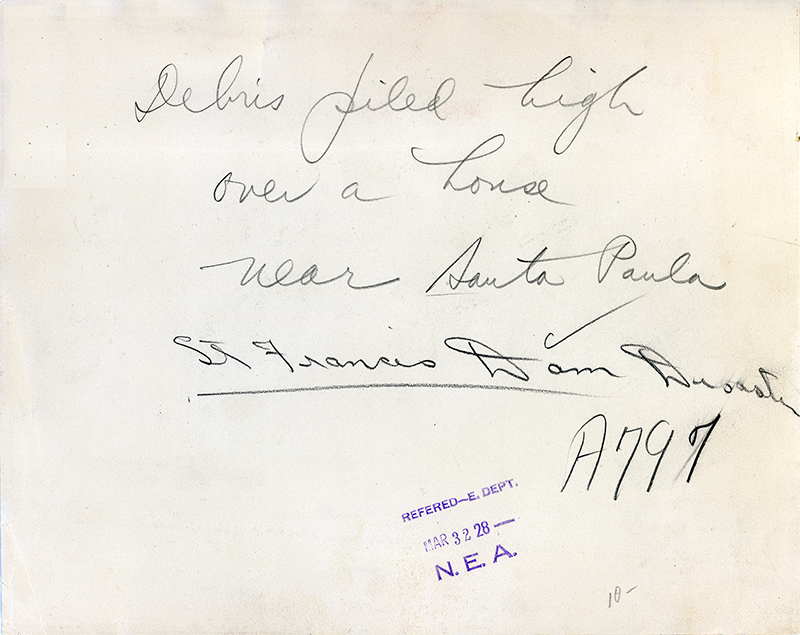 Debris piled high
over a house
near Santa Paula
St Francis Dam Disaster
A797
REFERED—E. DEPT.
MAR 32 28 —
N. E. A.
10-